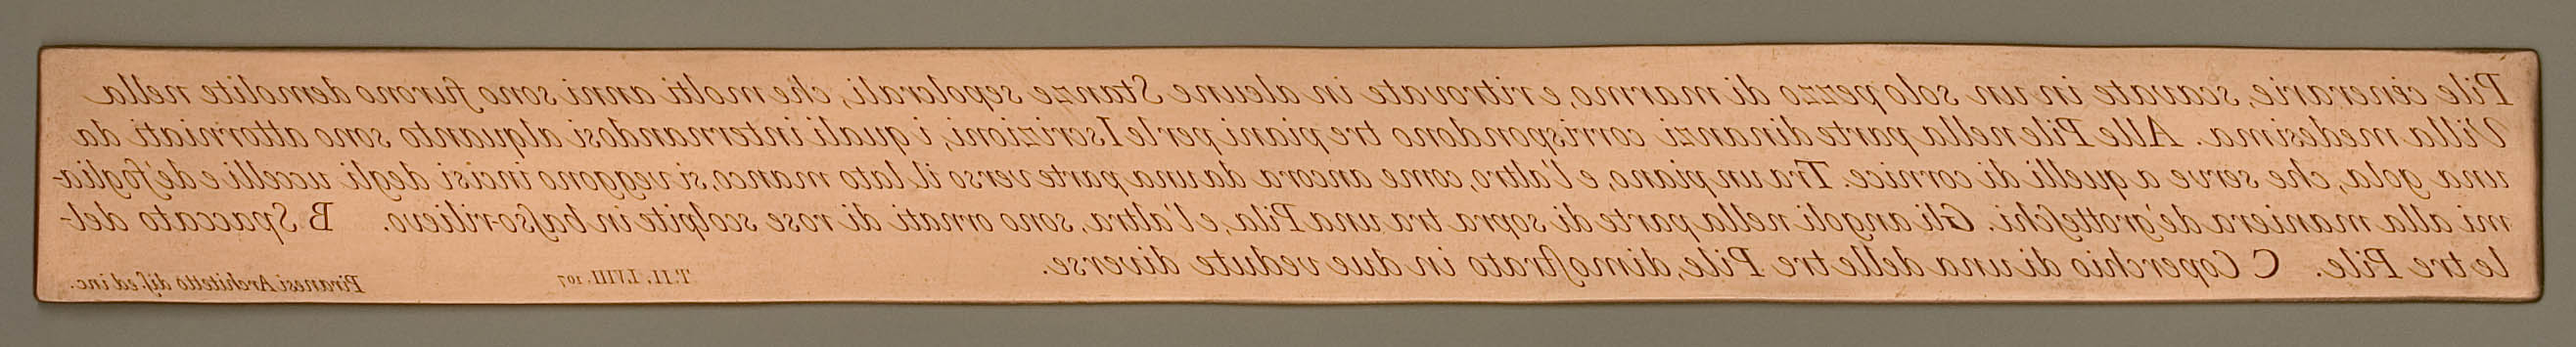 Pile cinerarie, scavate in un solo pezzo di marmo, e ritrovate in alcune Stanze sepolcrali, che molti anni sono furono demolite nella
Villa medesima. Alle Pile nella parte dinanzi corrispondono tre piani per le Iscrizioni, i quali internandosi alquanto sono attorniati da
una gola, che serve a quelli di cornice. Tra un piano, e l'altro, come ancora da una parte verso il lato manco, si veggono incisi degli uccelli e de' foglia-
mi alla maniera de' grotteſchi. Gli angoli nella parte di sopra tra una Pila, e l'altra, sono ornati di rose scolpite in baſso-rilievo. B Spaccato del-
le tre Pile. C Coperchio di una delle tre Pile, dimoſtrato in due vedute diverse.
T.II. LVIII. 107
Piranesi Architetto diſ. ed inc.